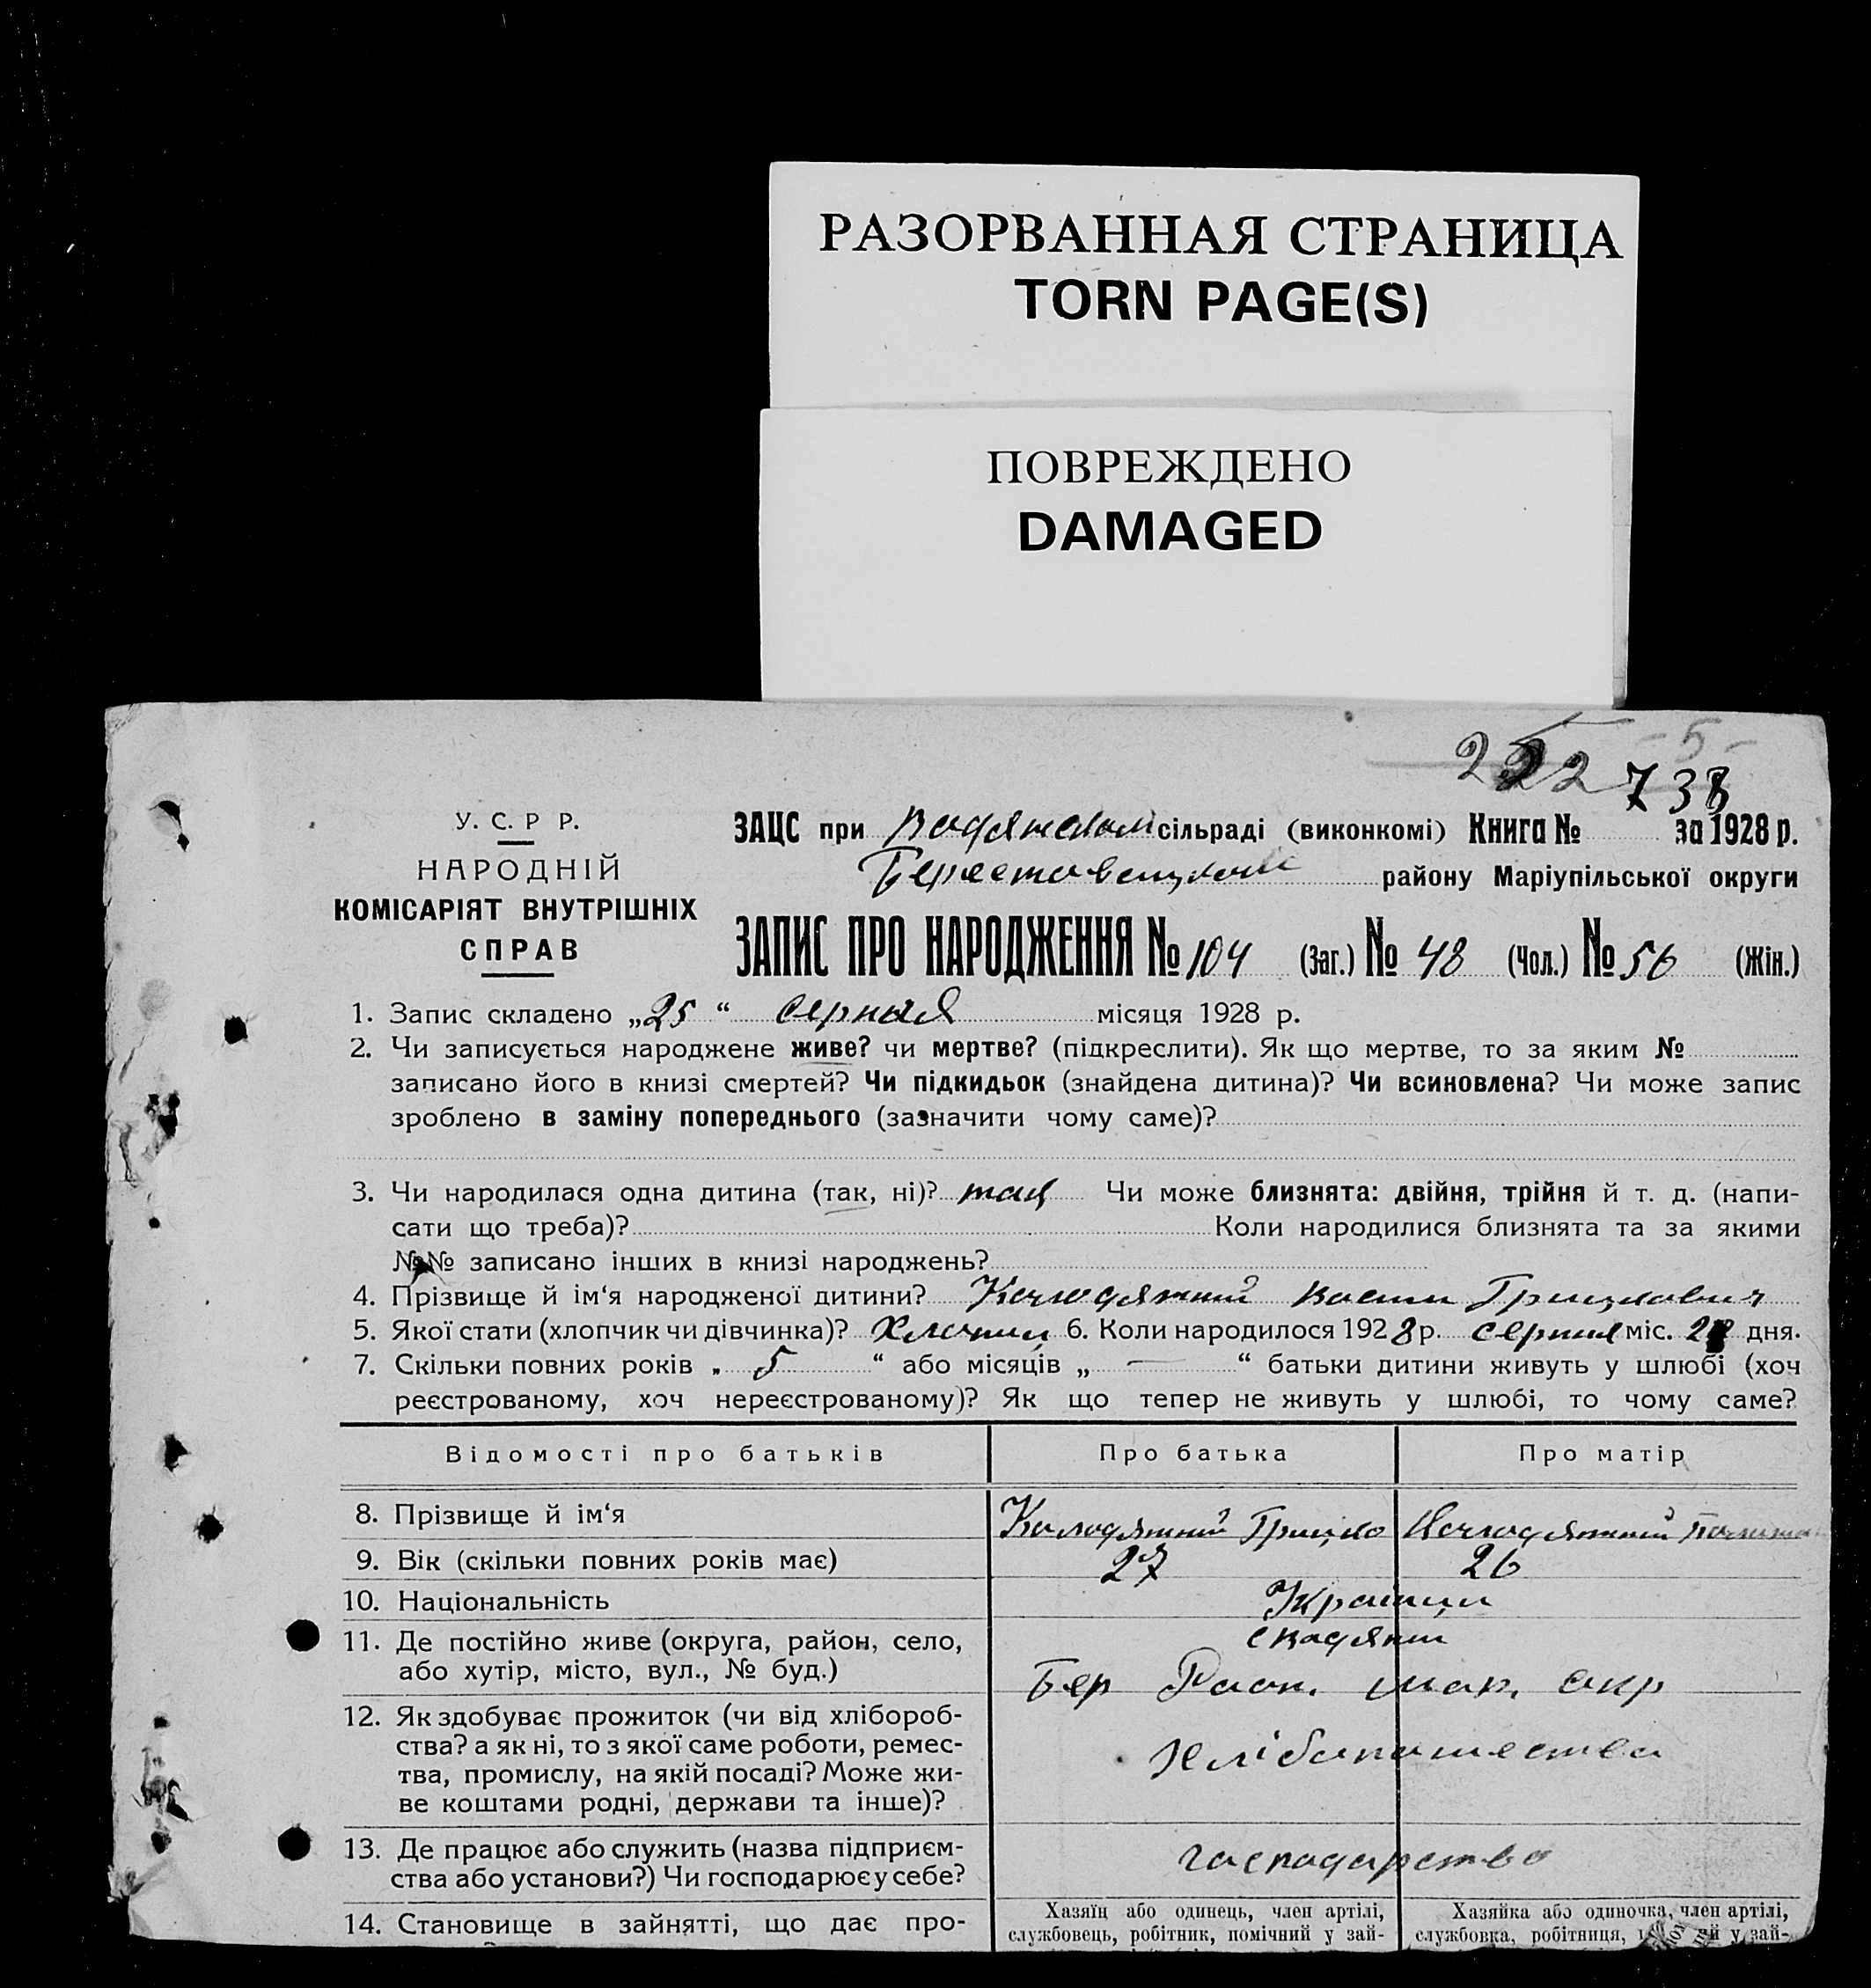 РАЗОРВАННАЯ СТРАНИЦА
TORN PAGE(S)
ПОВРЕЖДЕНО
DAMAGED
- 5 -
222 738
У. С. Р Р.
НАРОДНІЙ
КОМІСАРІЯТ ВНУТРІШНІХ
СПРАВ
ЗАЦС при Водяském сільраді (виконкомі) Книга № за 1928 р.
Берестовецком району Маріупільської округи
ЗАПИС ПРО НАРОДЖЕННЯ № 104 (Заг.) № 48 (Чол.) № 56 (Жін.)
1. Запис складено „25“ серпня місяця 1928 р.
2. Чи записується народжене живе? чи мертве? (підкреслити). Як що мертве, то за яким №
записано його в книзі смертей? Чи підкидьок (знайдена дитина)? Чи всиновлена? Чи може запис
зроблено в заміну попереднього (зазначити чому саме)?
3. Чи народилася одна дитина (так, ні)? так Чи може близнята: двійня, трійня й т. д. (напи-
сати що треба)? Коли народилися близнята та за якими
№№ записано інших в книзі народжень?
4. Прізвище й ім‘я народженої дитини? Колодяжний Васил Грицкович
5. Якої стати (хлопчик чи дівчинка)? Хлопчик 6. Коли народилося 1928 р. серпня міс. дня.
7. Скільки повних років „ 5 “ або місяців „ — “ батьки дитини живуть у шлюбі (хоч
реєстрованому, хоч нереєстрованому)? Як що тепер не живуть у шлюбі, то чому саме?
Відомості про батьків Про батька Про матір
8. Прізвище й ім‘я Колодяжний Грицко Колодяжний
9. Вік (скільки повних років має) 27 26
10. Національність Українци
11. Де постійно живе (округа, район, село,
або хутір, місто, вул., № буд.)
с Водяни
Бер Раон. мар. окр
12. Як здобуває прожиток (чи від хлібороб-
ства? а як ні, то з якої саме роботи, ремес-
тва, промислу, на якій посаді? Може жи-
ве коштами родні, держави та інше)?
хлібопашества
13. Де працює або служить (назва підприєм-
ства або установи?) Чи господарює у себе?
господарство
14. Становище в зайнятті, що дає про-
Хазяїн або одинець, член артілі,
службовець, робітник, помічний у зай-
Хазяйка або одиночка, член артілі,
службовка, робітниця, й у зай-